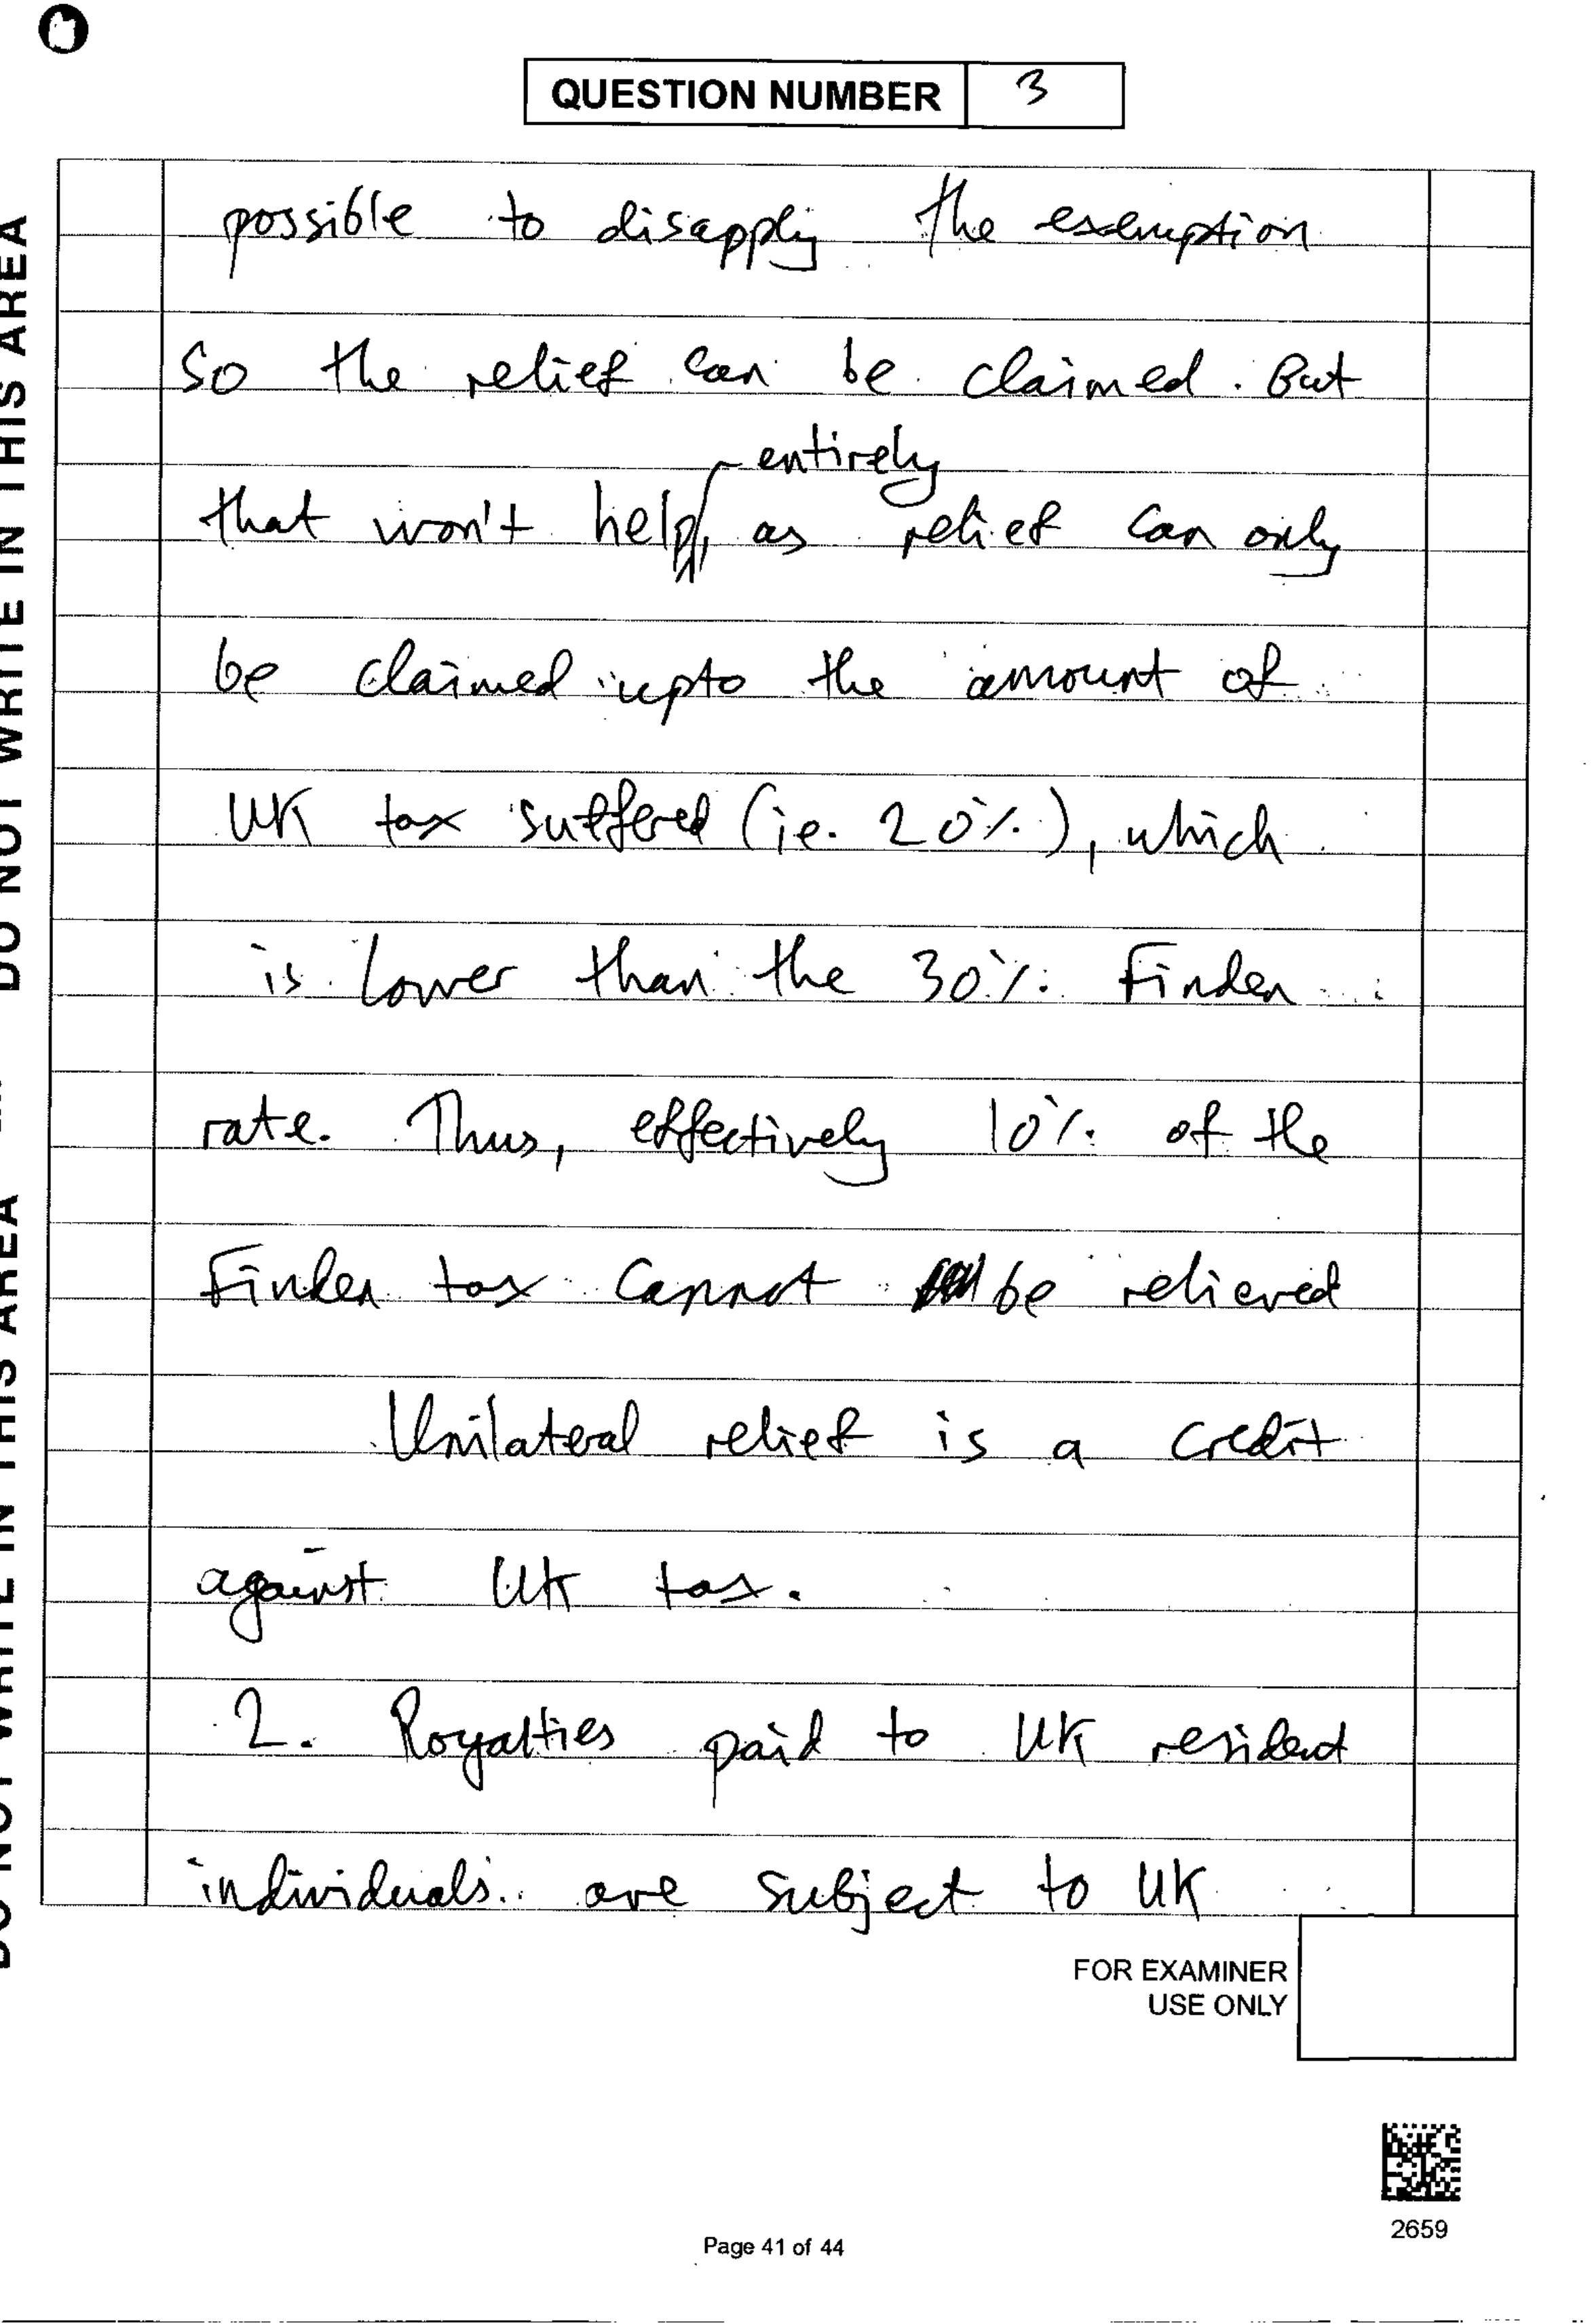 QUESTION NUMBER 3
possible to disapply the exemption
so the relief can be claimed. But
entirely
that won't help, as relief can only
be claimed upto the amount of
UK tax suffered (ie. 20%), which
is lower than the 30% Finden
rate. Thus, effectively 10% of the
Finden tax cannot be relieved
Unilateral relief is a credit
against UK tax.
2. Royalties paid to UK resident
individuals are subject to UK
FOR EXAMINER
USE ONLY
2659
Page 41 of 44
DO NOT WRITE IN THIS AREA
DO NOT WRITE IN THIS AREA